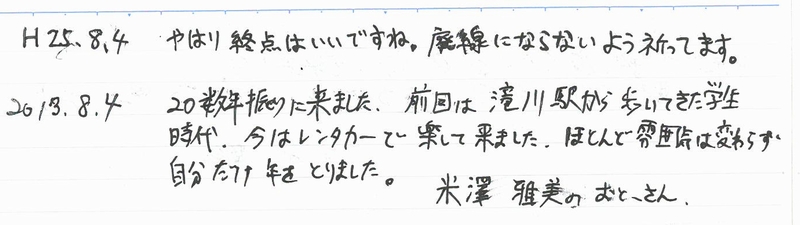 H25.8.4 やはり終点はいいですね。廃線にならないよう祈ってます。
2013.8.4 20数年振りに来ました。前回は滝川駅から歩いてきた学生
時代、今はレンタカーで楽して来ました。ほとんど雰囲気は変わらず、
自分だけ年をとりました。
米澤 雅美のおとーさん.